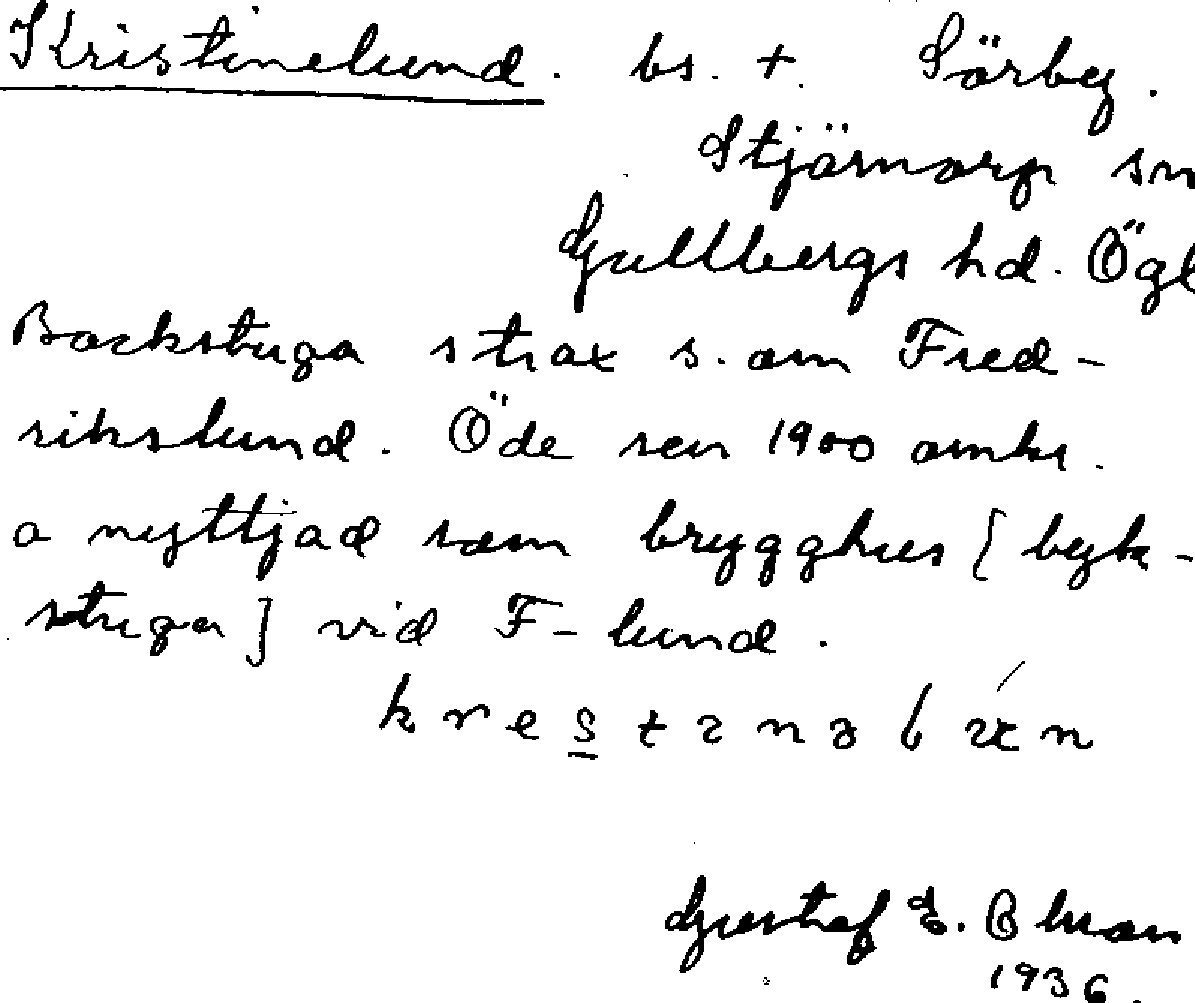 Kristinelund. bs. +. Sörby.
Stjärnorp sn
Gullbergs hd. Ögl
Backstuga strax s. om Fred-
rikslund. Öde sen 1900 omkr.
o nyttjad som brygghus [byk-
stuga] vid F-lund.
Gustaf E. Ohman
1936.